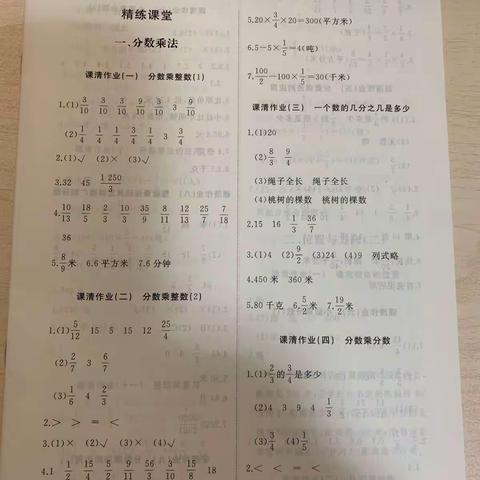 精练课堂
一、分数乘法
课清作业(一) 分数乘整数(1)
1.(1)3/10 3/10 9/10 3/10 3 9/10
(2)1/4 1/4 1/4 3/4 1/4 3 3/4
2.(1)√ (2)× (3)√
3.32 45 1 250/3
4.10/13 18/5 2/3 10/3 35/9 8/11 12/13 25/7 7/18
36
5.8/9米 6.6平方米 7.6分钟
课清作业(二) 分数乘整数(2)
1.(1)5/12 15 5 15 12 25/4
(2)2/7 3 6/7
(3)1/6 4 2/3
2.> > = <
3.(1)× (2)√ (3)× (4)√
4.1 1/2 15/4 5/2 9/11 56/3 3/10 15/8 18
5.20×3/4×20=300(平方米)
6.5-5×1/5=4(吨)
课清作业(三) 一个数的几分之几是多少
1.(1)20
(2)8/3 9/4
(3)绳子全长 绳子全长
(4)桃树的棵数 桃树的棵数
2.15 16 1/3 36/7
3.(1)4 (2)9/2 (3)24 (4)9 列式略
4.450米 360米
5.80千克 6.5/2米 7.19/2米
课清作业(四) 分数乘分数
1.(1)2/3的3/4是多少
(2)4 3 9 4 1/3
(3)3/4 (4)1/5
2.< < = <